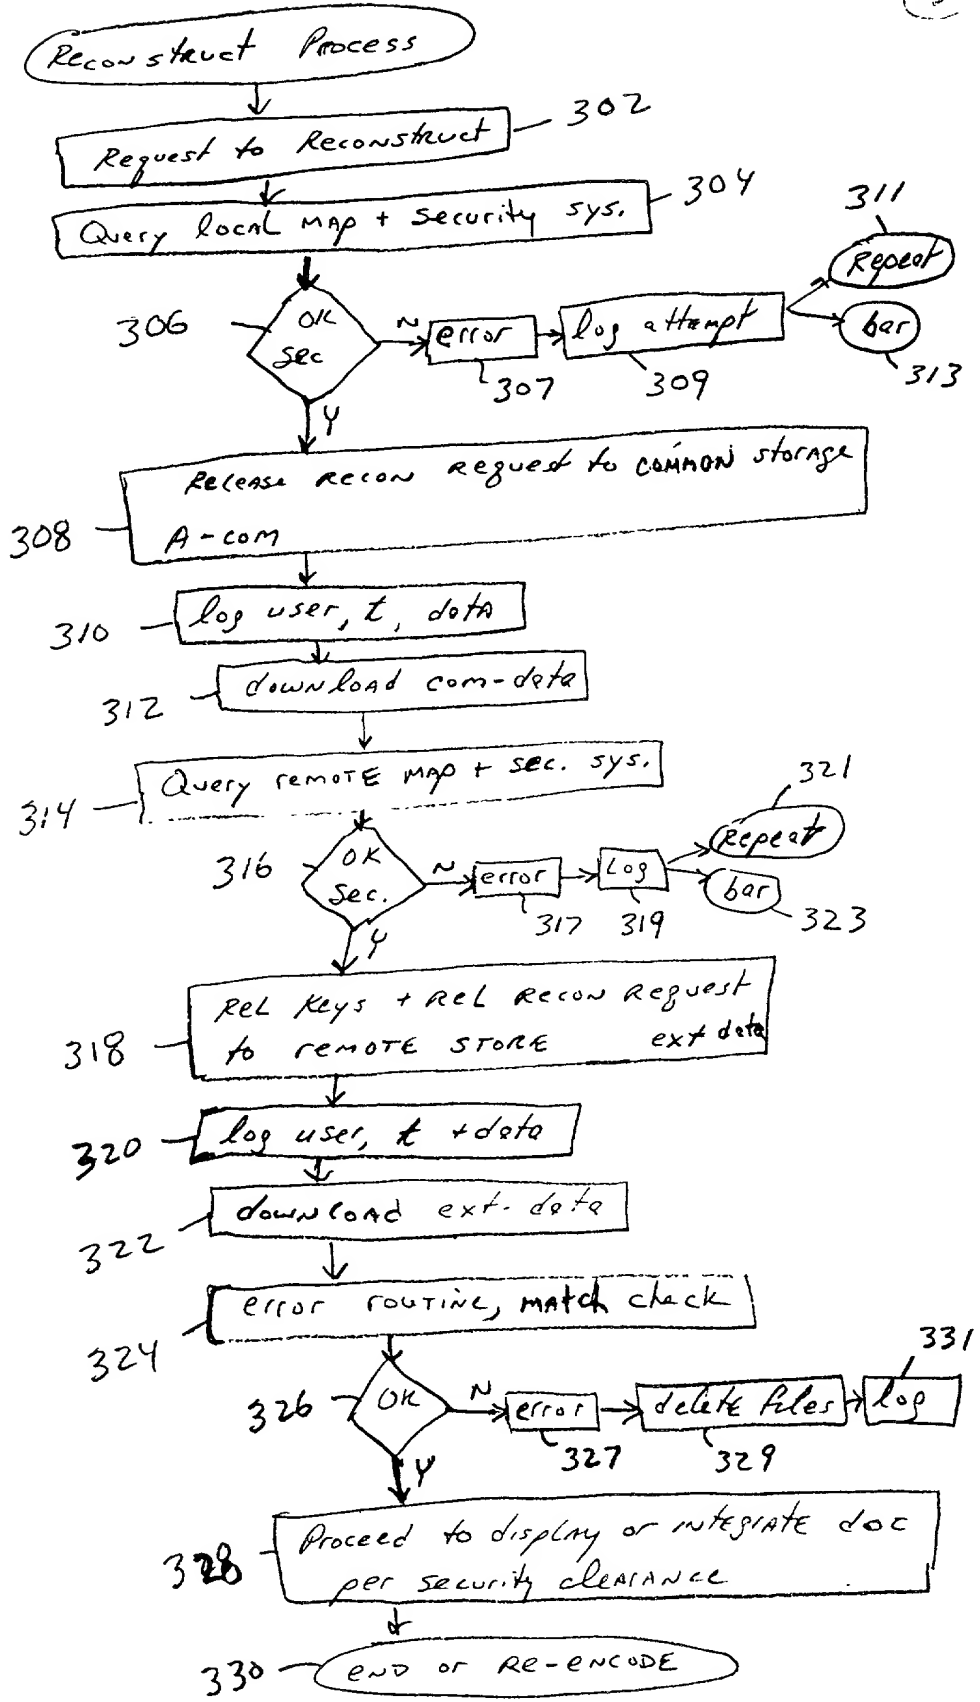 Reconstruct Process
302
Request to Reconstruct
304
Query local MAP + security sys.
311
Repeat
306
OK
sec
N
error
log attempt
bar
307
309
313
Y
Release recon request to common storage
308
A-com
310
log user, t, data
312
download com-data
314
Query remote map + sec. sys.
321
316
OK
sec.
N
error
Log
Repeat
bar
317
319
323
Y
Rel Keys + Rel Recon Request
318
to remote store ext data
320
log user, t + data
322
download ext. data
324
error routine, match check
331
326
OK
N
error
delete files
log
327
329
Y
Proceed to display or integrate doc
328
per security clearance
330
end or Re-encode